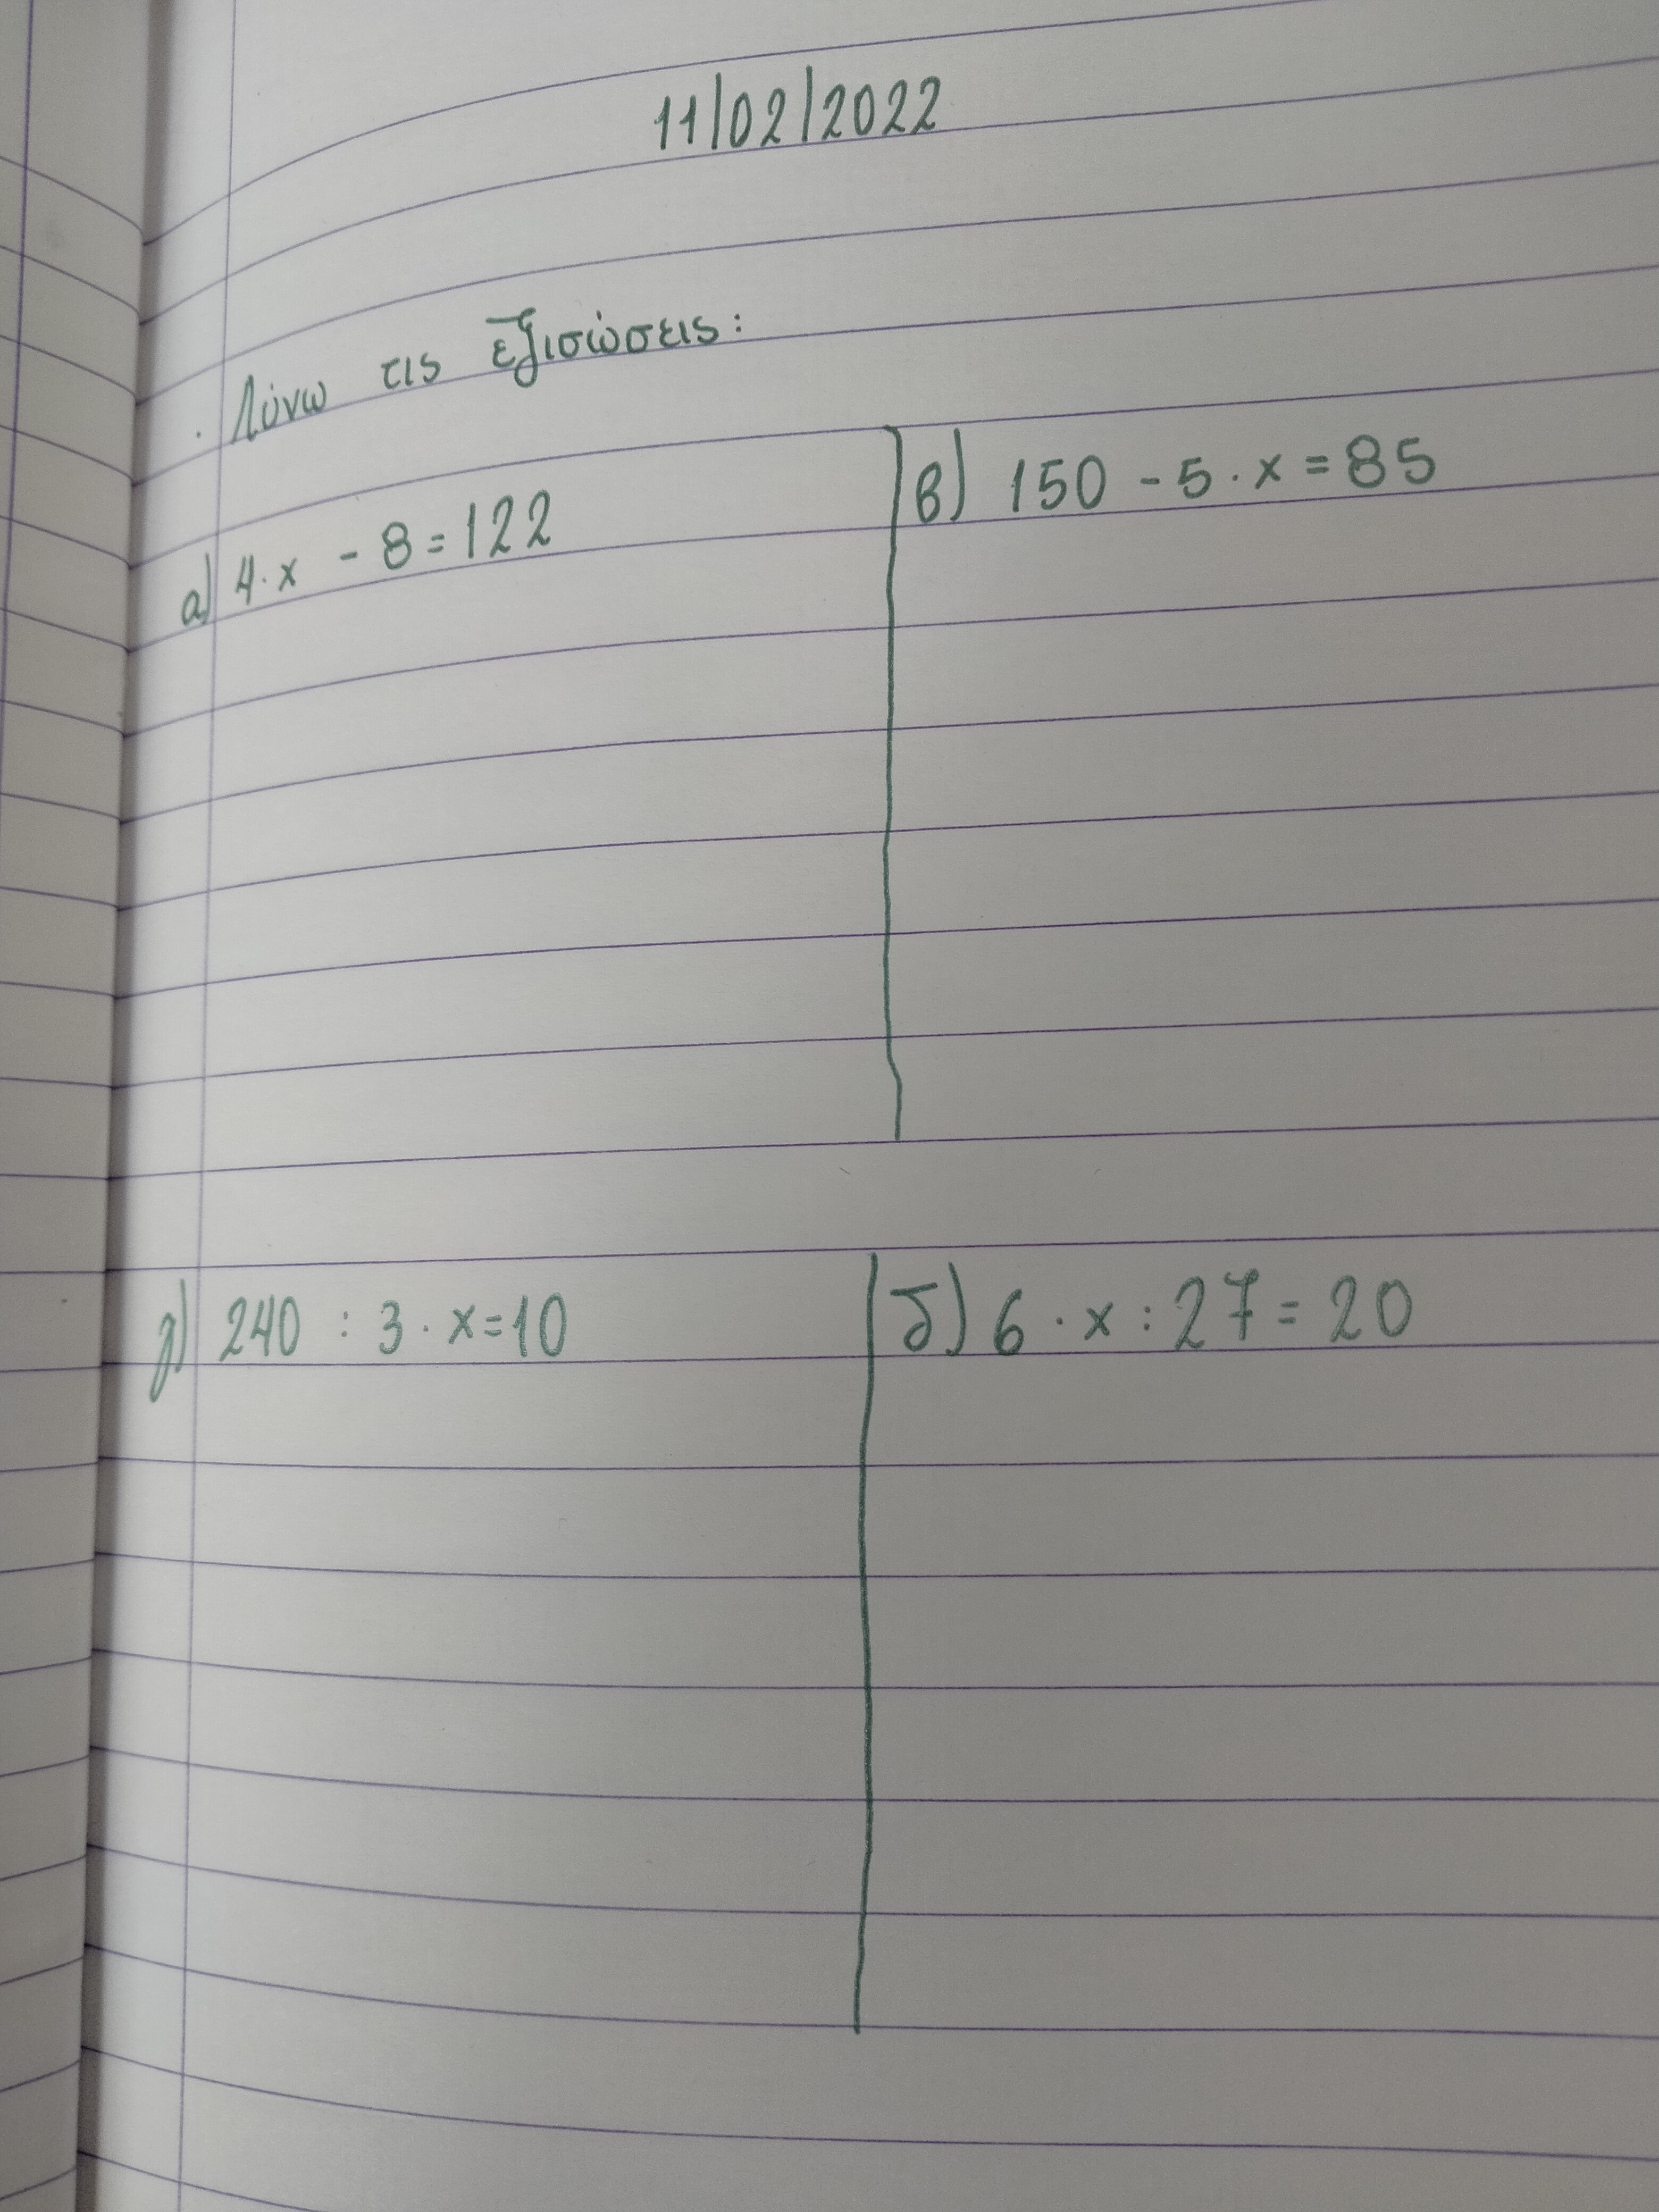 11/02/2022
. Λύνω τις εξισώσεις:
α) 4·x - 8 = 122
β) 150 - 5·x = 85
γ) 240 : 3·x = 10
δ) 6·x : 27 = 20